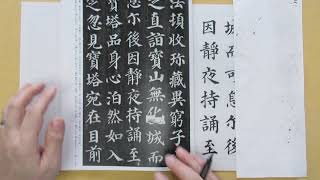 城而可息尔後
因靜夜持誦至
法頂收珎藏異窮子
直詣寶山無化城而
息尔後因靜夜持誦至
寶塔品身心泊然如入
忽見寶塔宛在目前